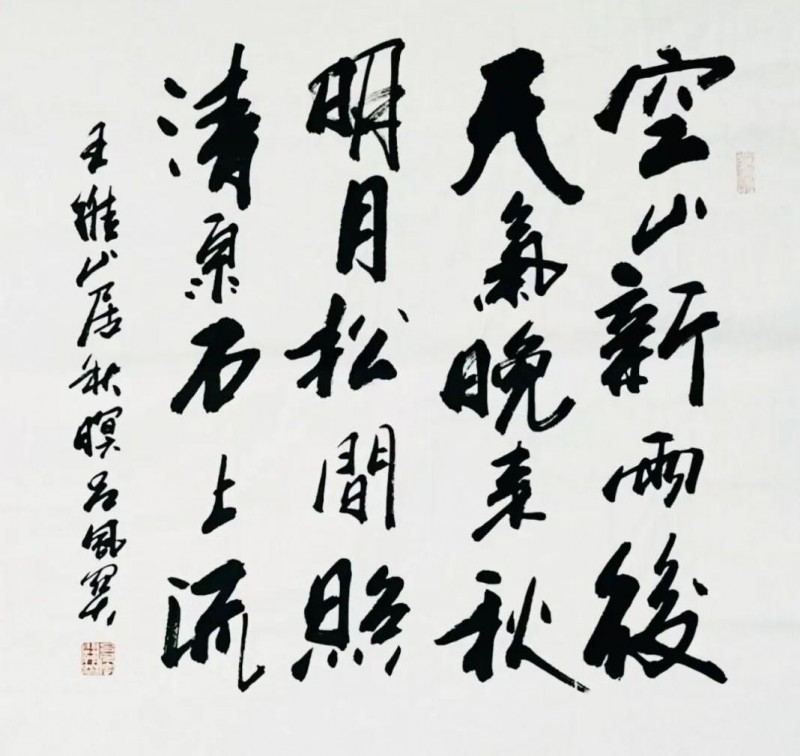 空山新雨後
天氣晚來秋
明月松間照
清泉石上流
王維山居秋暝 呂風翼